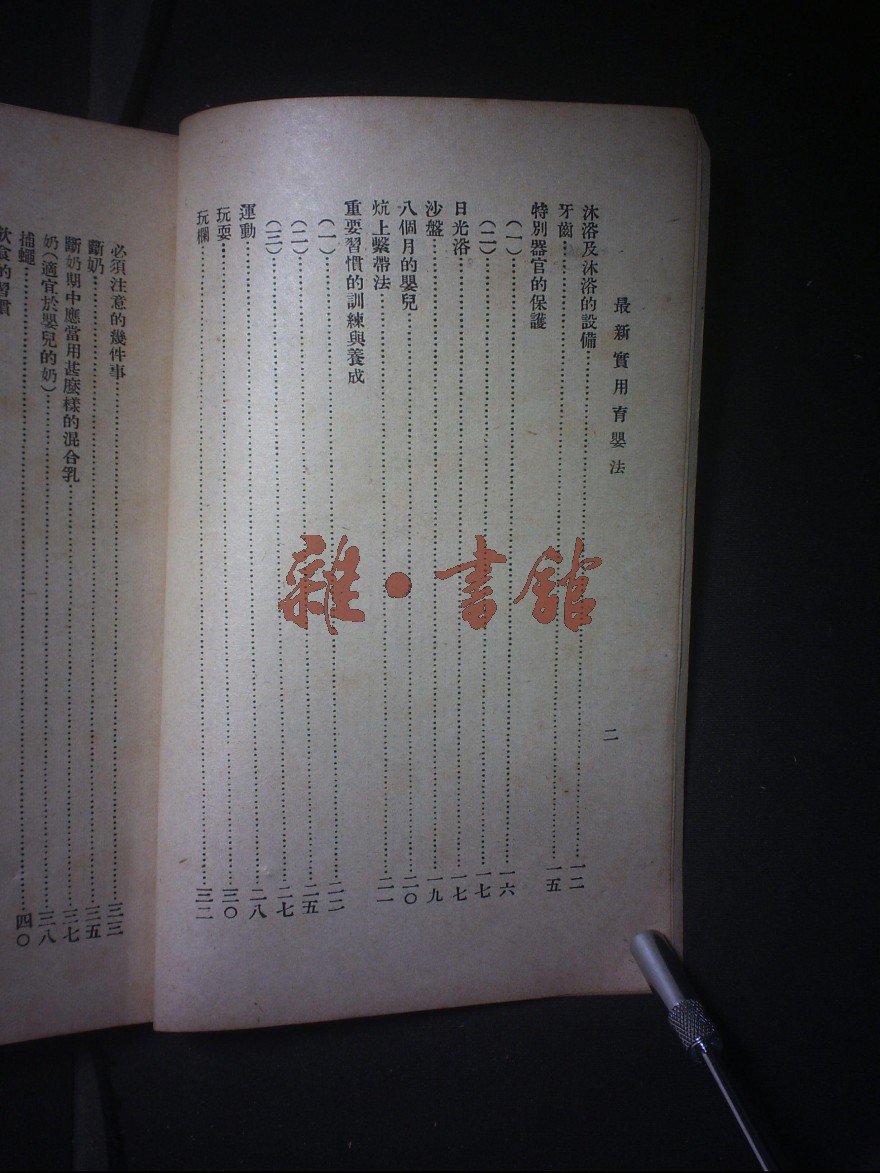 最新實用育嬰法
二
沐浴及沐浴的設備……一二
牙齒……一五
特別器官的保護
（一）……一六
（二）……一七
日光浴……一七
沙盤……一九
八個月的嬰兒……二〇
炕上繫帶法……二一
重要習慣的訓練與養成
（一）……二二
（二）……二五
（三）……二七
運動……二八
玩耍……三〇
玩欄……三二
必須注意的幾件事……三三
斷奶……三五
斷奶期中應當用甚麼樣的混合乳……三七
奶（適宜於嬰兒的奶）……三八
捕蠅……四〇
飲食的習慣
雜·書館